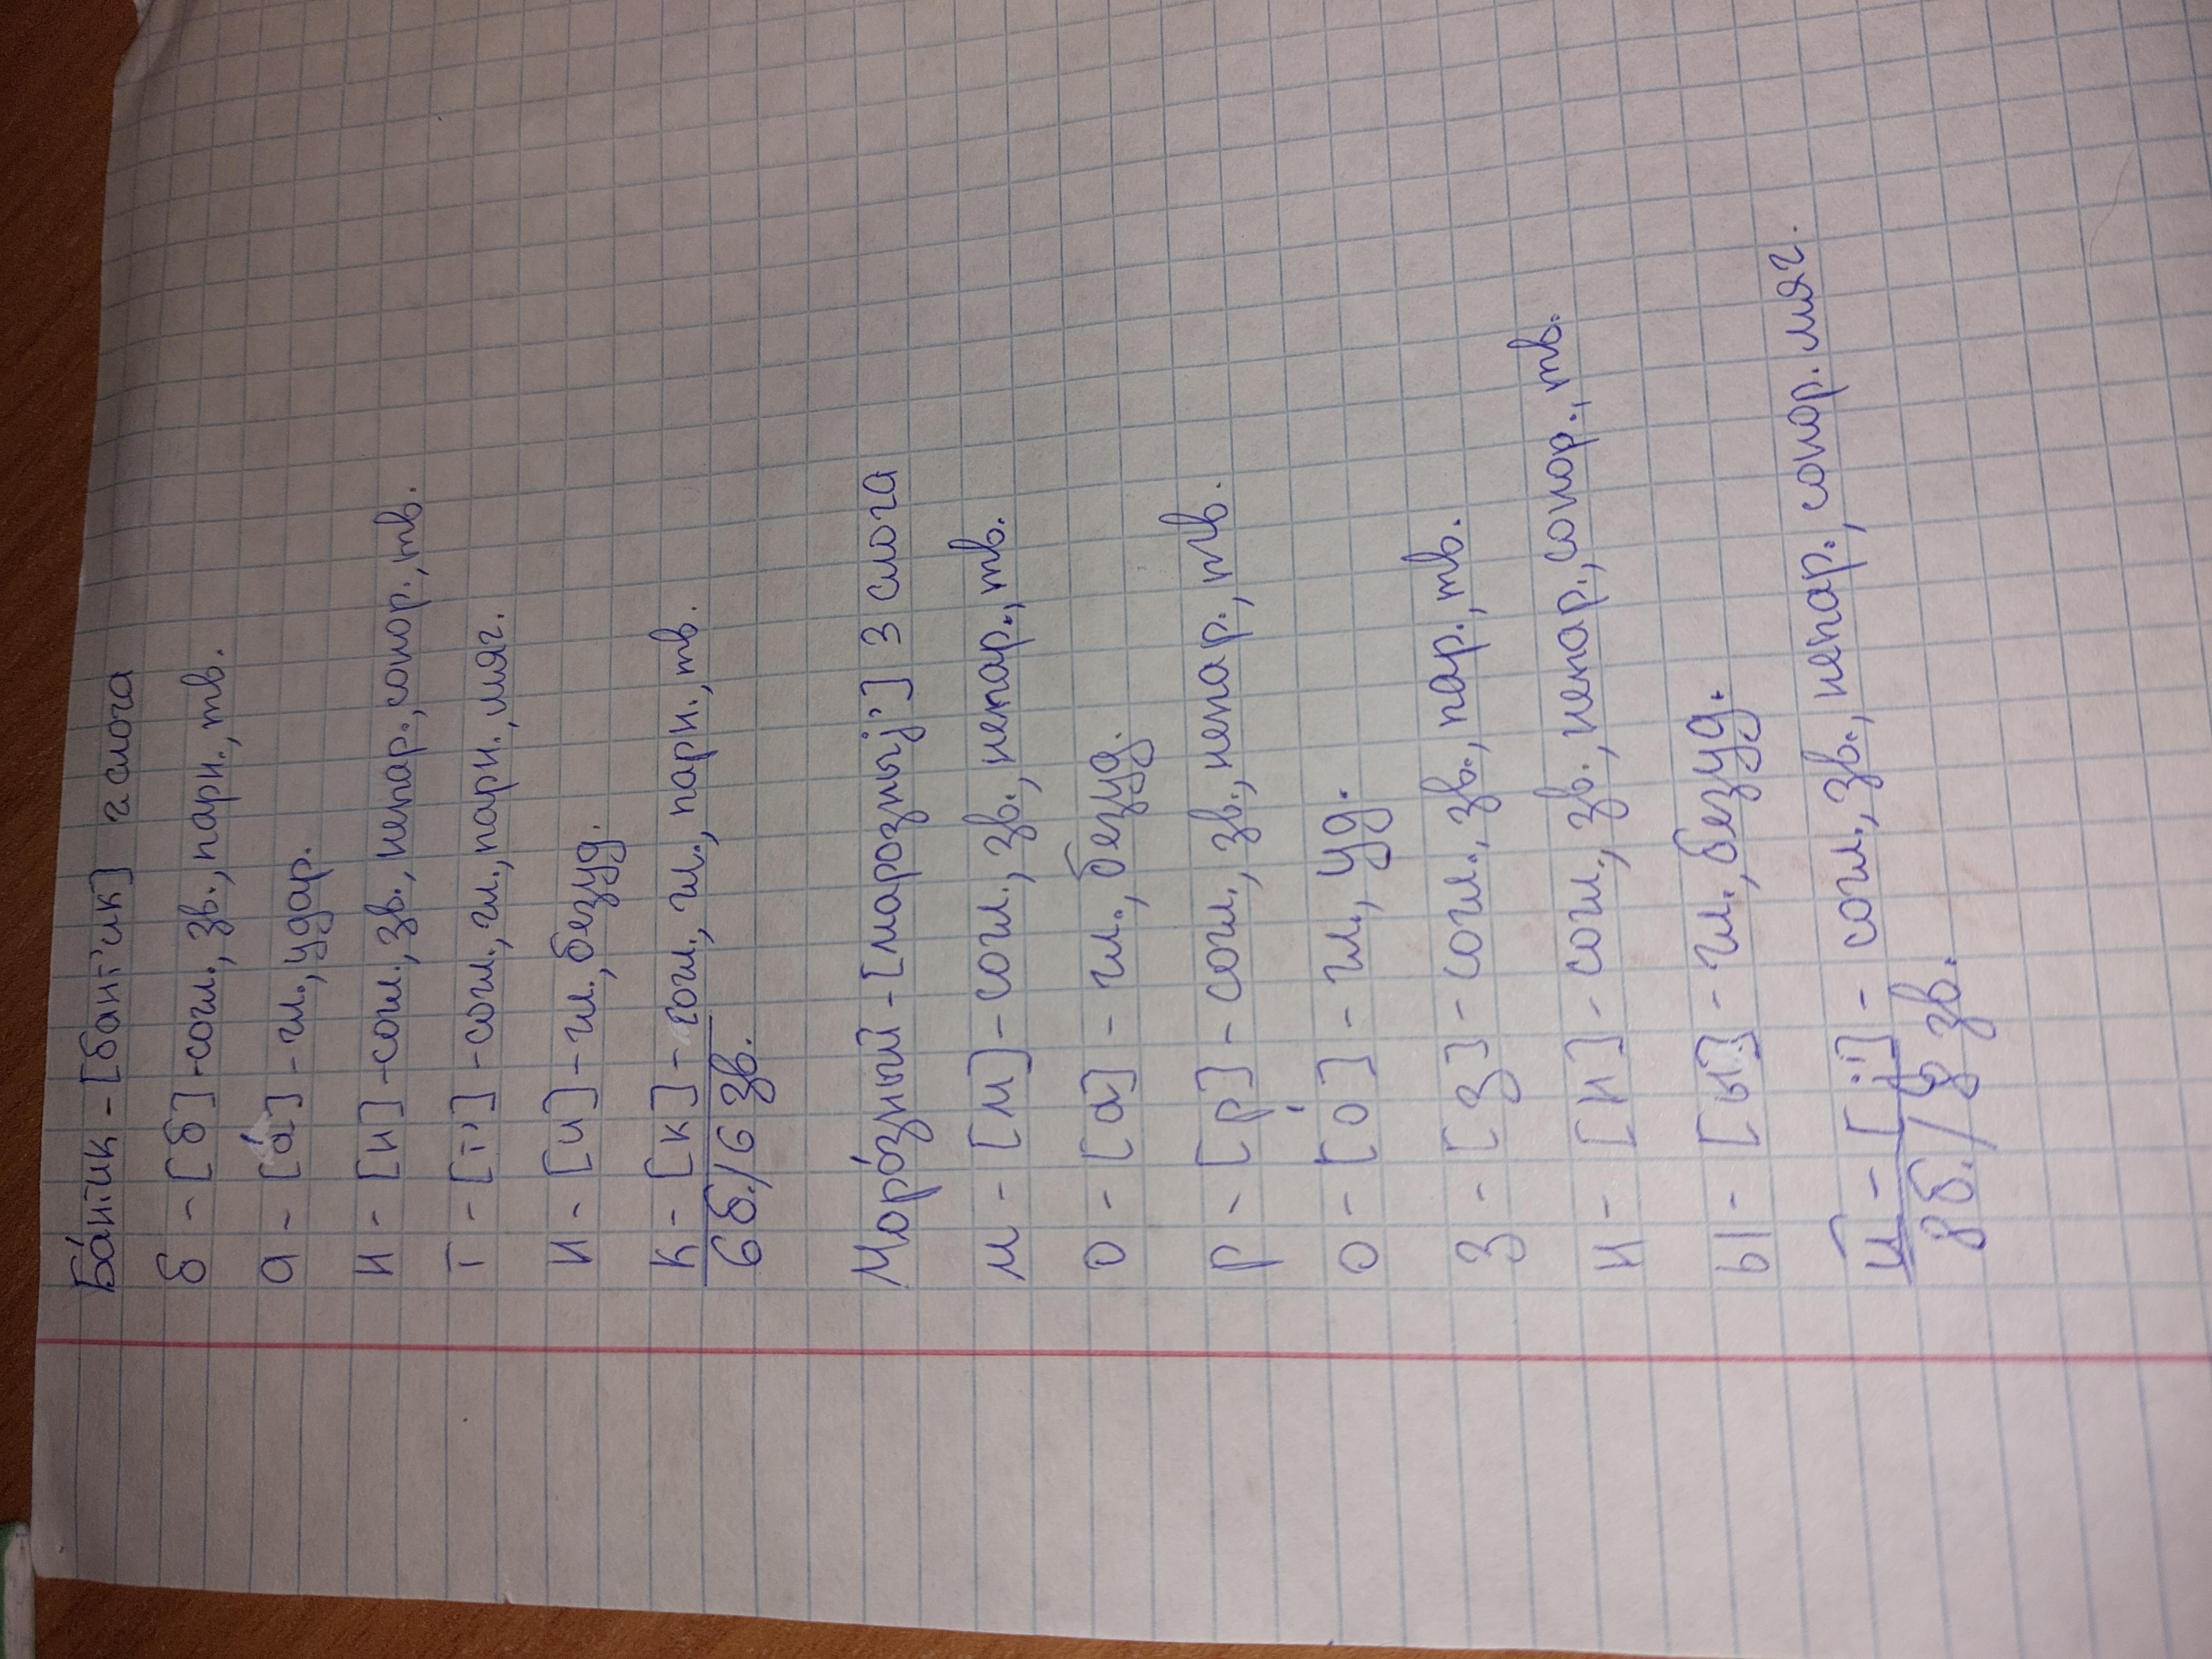 Ба́нтик - [бант'ик] 2 слога
б - [б] - согл., зв., парн., тв.
а - [а́] - гл., удар.
н - [н] - согл., зв., непар., сонор., тв.
т - [т'] - согл., гл., парн., мяг.
и - [и] - гл., безуд.
к - [к] - согл., гл., парн., тв.
6 б./6 зв.
Моро́зный - [марозныj'] 3 слога
м - [м] - согл., зв., непар., тв.
о - [а] - гл., безуд.
р - [р] - согл., зв., непар., тв.
о - [о́] - гл., уд.
з - [з] - согл., зв., пар., тв.
н - [н] - согл., зв., непар., сонор., тв.
ы - [ы] - гл., безуд.
й - [j'] - согл., зв., непар., сонор. мяг.
8 б./8 зв.